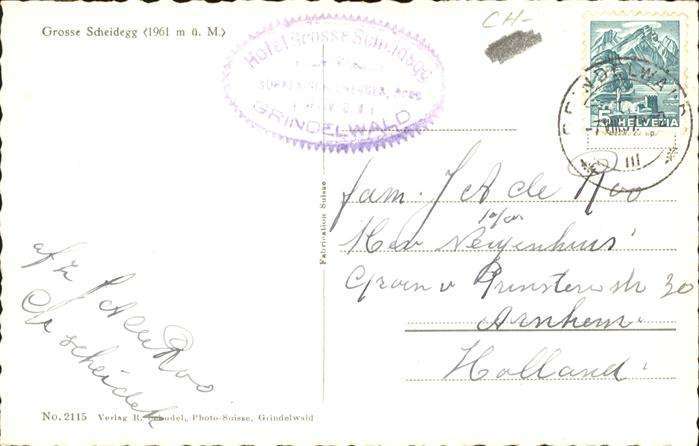 Grosse Scheidegg (1961 m ü. M.)
CH-
Hotel Grosse Scheidegg
GRINDELWALD
HELVETIA
GRINDELWALD
III
Fabrication Suisse
fam. J A de Roo
Groen v Prinsterer str 30
Arnhem
Holland
afz J A de Roo
Gr scheidek
No. 2115 Verlag R. Schudel, Photo-Suisse, Grindelwald